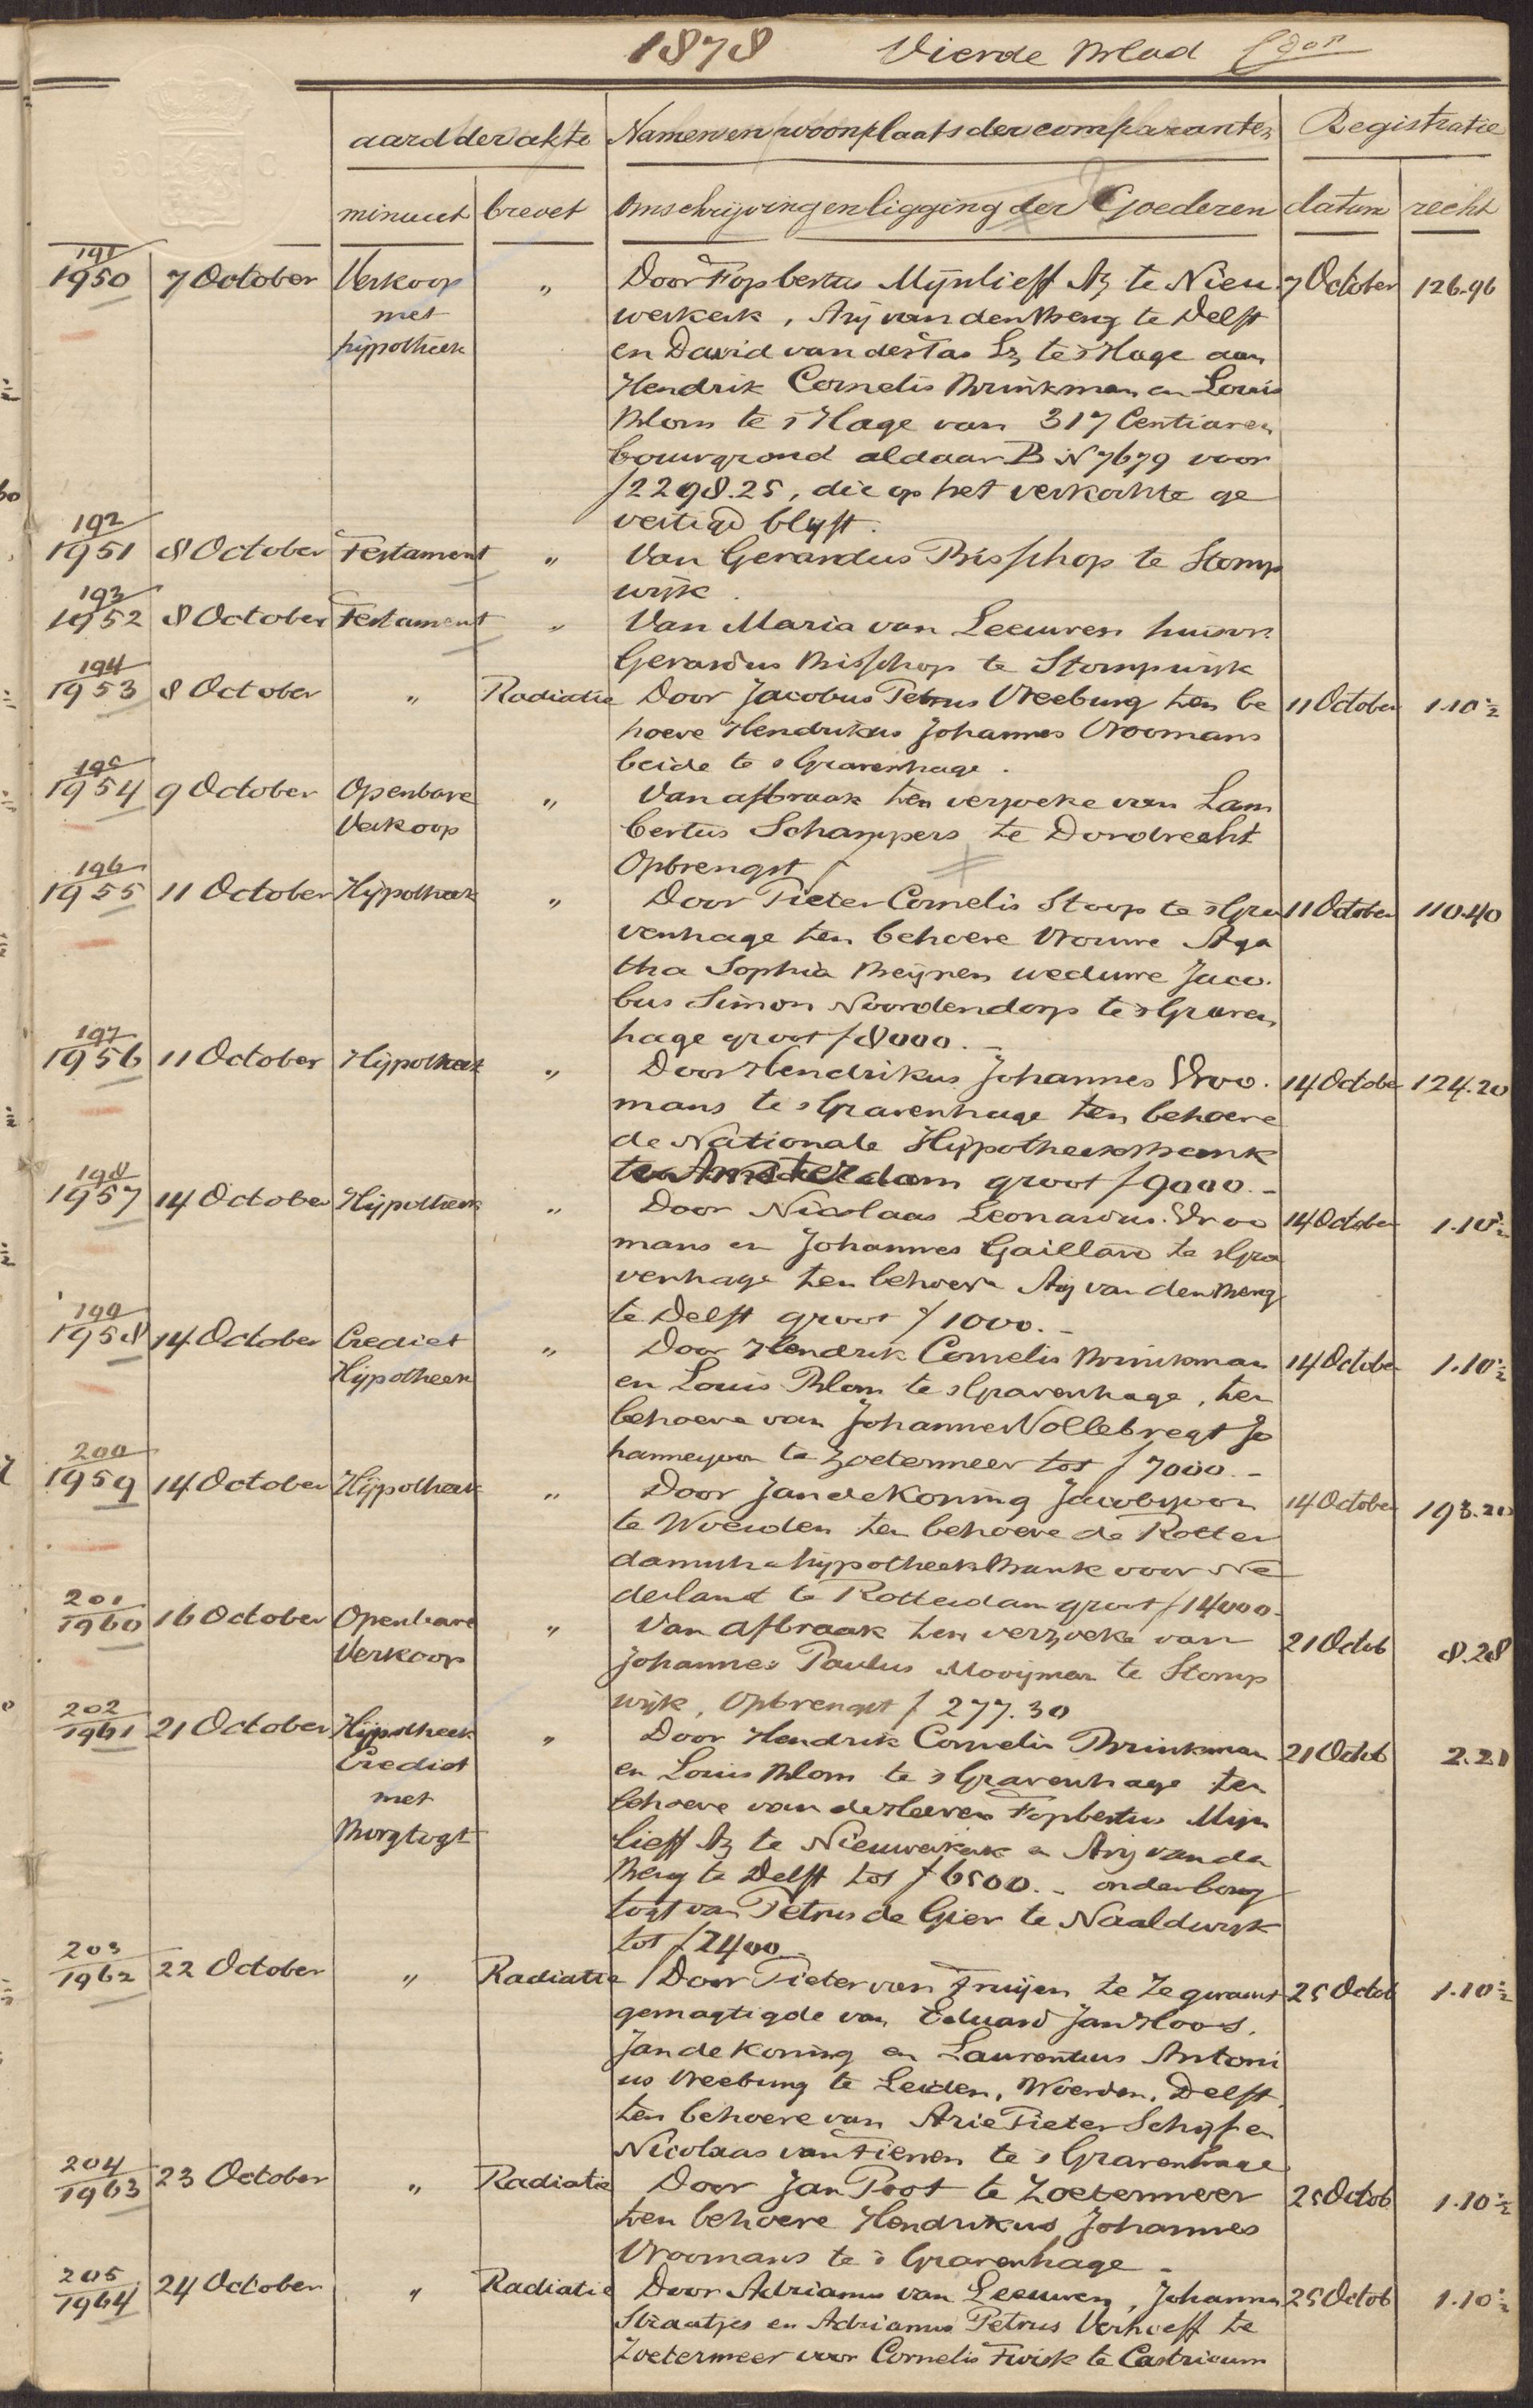 1878 Vierde Blad
aard der akte Namen en woonplaats der comparanten Registratie
minuut brevet Omschrijving en ligging der Goederen datum recht
191
1950 7 October Verkoop " Door Fopbertus Mijnlieff Az te Nieu 7 October 126.96
met werkerk, Arij van den Berg te Delft
hypotheek en David van der Tas Lz te 's Hage aan
Hendrik Cornelis Brinkman en Louis
Blom te 's Hage van 317 Centiaren
bouwgrond aldaar B N 7679 voor
f 2298.25, die op het verkochte ge
vestigd blijft.
192
1951 8 October Testament " Van Gerardus Bisschop te Stomp
wijk.
193
1952 8 October Testament " Van Maria van Leeuwen huisvr.
Gerardus Bisschop te Stompwijk
194
1953 8 October " Radiatie Door Jacobus Petrus Vreeburg ten be 11 October 1.10½
hoeve Hendrikus Johannes Vroomans
beide te 's Gravenhage.
195
1954 9 October Openbare " Van afbraak ten verzoeke van Lam
Verkoop bertus Schampers te Dordrecht
Opbrengst f
196
1955 11 October Hypotheek " Door Pieter Cornelis Stoop te 's Gra 11 October 110.40
venhage ten behoeve Vrouwe Aga
tha Sophia Meijnen weduwe Jaco.
bus Simon Noordendorp te 's Graven
hage groot f 8000.-
197
1956 11 October Hypotheek " Door Hendrikus Johannes Vroo. 14 October 124.20
mans te 's Gravenhage ten behoeve
de Nationale Hypotheekbank
te Amsterdam groot f 9000.-
198
1957 14 October Hypotheek " Door Nicolaas Leonardus Vroo 14 October 1.10½
mans en Johannes Gaillard te 's Gra
venhage ten behoeve Arij van den Berg
te Delft groot f 1000.-
199
1958 14 October Crediet " Door Hendrik Cornelis Brinkman 14 October 1.10½
Hypotheek en Louis Blom te 's Gravenhage, ten
behoeve van Johannes Vollebregt Jo
hanneszoon te Zoetermeer tot f 7000.-
200
1959 14 October Hypotheek " Door Jan de Koning Jacobszoon 14 October 193.20
te Woerden ten behoeve de Rotter
damsche hypotheekbank voor Ne
derland te Rotterdam groot f 14000.-
201
1960 16 October Openbare " Van afbraak ten verzoeke van 21 Octob 8.28
Verkoop Johannes Paulus Mooijman te Stomp
wijk, Opbrengst f 277.30
202
1961 21 October Hypotheek " Door Hendrik Cornelis Brinkman 21 Octob 2.21
Crediet en Louis Blom te 's Gravenhage ten
met behoeve van de Heeren Fopbertus Mijn
Borgtogt lieff Az te Nieuwerkerk en Arij van den
Berg te Delft tot f 6500.- onder borg
togt van Petrus de Gier te Naaldwijk
tot f 2400
203
1962 22 October " Radiatie Door Pieter van Truijen te Zegwaart 25 Octob 1.10½
gemagtigde van Eduard Jan Hoos,
Jan de Koning en Laurentius Antoni
us Vreeburg te Leiden, Woerden, Delft,
ten behoeve van Arie Pieter Schijf en
Nicolaas van Tienen te 's Gravenhage
204
1963 23 October " Radiatie Door Jan Poot te Zoetermeer 25 Octob 1.10½
ten behoeve Hendrikus Johannes
Vroomans te 's Gravenhage -
205
1964 24 October " Radiatie Door Adrianus van Leeuwen, Johanna 25 Octob 1.10½
Straatjes en Adrianus Petrus Verhoeff te
Zoetermeer voor Cornelis Twisk te Castricum